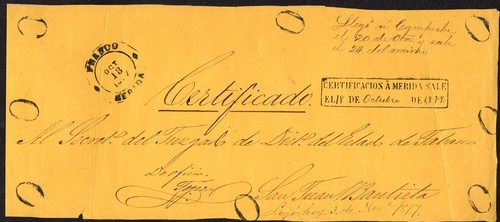 Llegó á Campeche
el 20 de Obre. y sale
el 24 del mismo
FRANCO
OCT
18
MERIDA
CERTIFICACION A MERIDA SALE
EL 18 DE Octubre DE 1877.
Certificado.
Al Srio. del Tregal de Dist. del Estado de Tabasco
De oficio.
San Juan Bautista